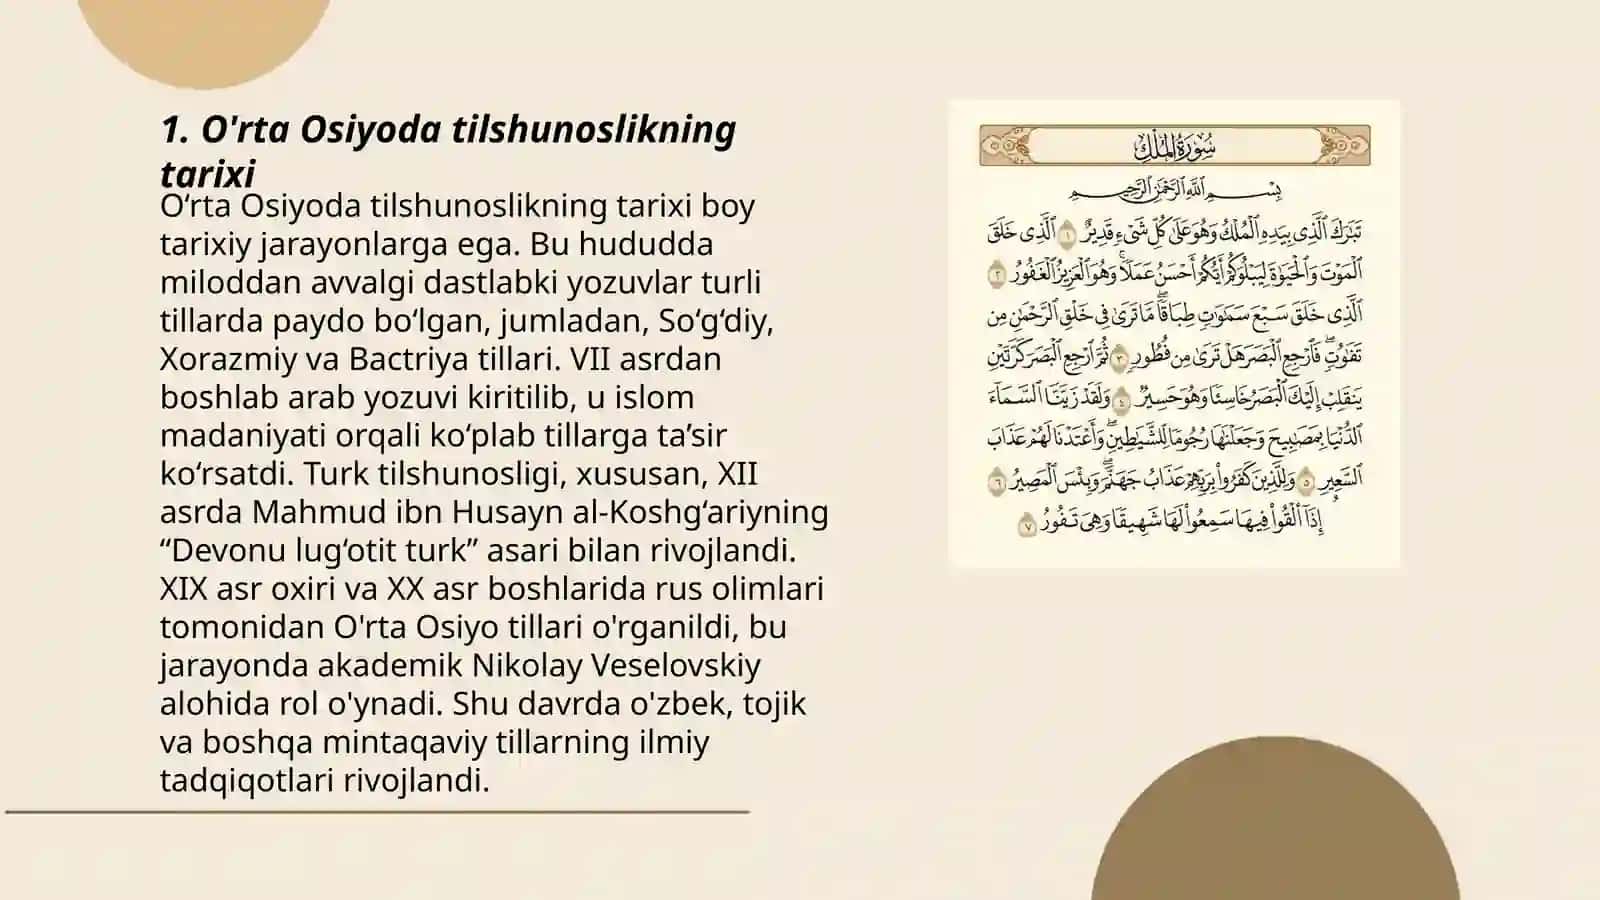 1. O'rta Osiyoda tilshunoslikning
tarixi
O‘rta Osiyoda tilshunoslikning tarixi boy
tarixiy jarayonlarga ega. Bu hududda
miloddan avvalgi dastlabki yozuvlar turli
tillarda paydo bo‘lgan, jumladan, So‘g‘diy,
Xorazmiy va Bactriya tillari. VII asrdan
boshlab arab yozuvi kiritilib, u islom
madaniyati orqali ko‘plab tillarga ta’sir
ko‘rsatdi. Turk tilshunosligi, xususan, XII
asrda Mahmud ibn Husayn al-Koshg‘ariyning
“Devonu lug‘otit turk” asari bilan rivojlandi.
XIX asr oxiri va XX asr boshlarida rus olimlari
tomonidan O'rta Osiyo tillari o'rganildi, bu
jarayonda akademik Nikolay Veselovskiy
alohida rol o'ynadi. Shu davrda o'zbek, tojik
va boshqa mintaqaviy tillarning ilmiy
tadqiqotlari rivojlandi.
سُورَةُ المُلْكِ
بِسْمِ اللَّهِ الرَّحْمَٰنِ الرَّحِيمِ
تَبَٰرَكَ ٱلَّذِى بِيَدِهِ ٱلْمُلْكُ وَهُوَ عَلَىٰ كُلِّ شَىْءٍ قَدِيرٌ ١ ٱلَّذِى خَلَقَ
ٱلْمَوْتَ وَٱلْحَيَوٰةَ لِيَبْلُوَكُمْ أَيُّكُمْ أَحْسَنُ عَمَلًا ۚ وَهُوَ ٱلْعَزِيزُ ٱلْغَفُورُ ٢
ٱلَّذِى خَلَقَ سَبْعَ سَمَٰوَٰتٍ طِبَاقًا ۖ مَّا تَرَىٰ فِى خَلْقِ ٱلرَّحْمَٰنِ مِن
تَفَٰوُتٍ ۖ فَٱرْجِعِ ٱلْبَصَرَ هَلْ تَرَىٰ مِن فُطُورٍ ٣ ثُمَّ ٱرْجِعِ ٱلْبَصَرَ كَرَّتَيْنِ
يَنقَلِبْ إِلَيْكَ ٱلْبَصَرُ خَاسِئًا وَهُوَ حَسِيرٌ ٤ وَلَقَدْ زَيَّنَّا ٱلسَّمَآءَ
ٱلدُّنْيَا بِمَصَٰبِيحَ وَجَعَلْنَٰهَا رُجُومًا لِّلشَّيَٰطِينِ ۖ وَأَعْتَدْنَا لَهُمْ عَذَابَ
ٱلسَّعِيرِ ٥ وَلِلَّذِينَ كَفَرُوا۟ بِرَبِّهِمْ عَذَابُ جَهَنَّمَ ۖ وَبِئْسَ ٱلْمَصِيرُ ٦
إِذَآ أُلْقُوا۟ فِيهَا سَمِعُوا۟ لَهَا شَهِيقًا وَهِىَ تَفُورُ ٧